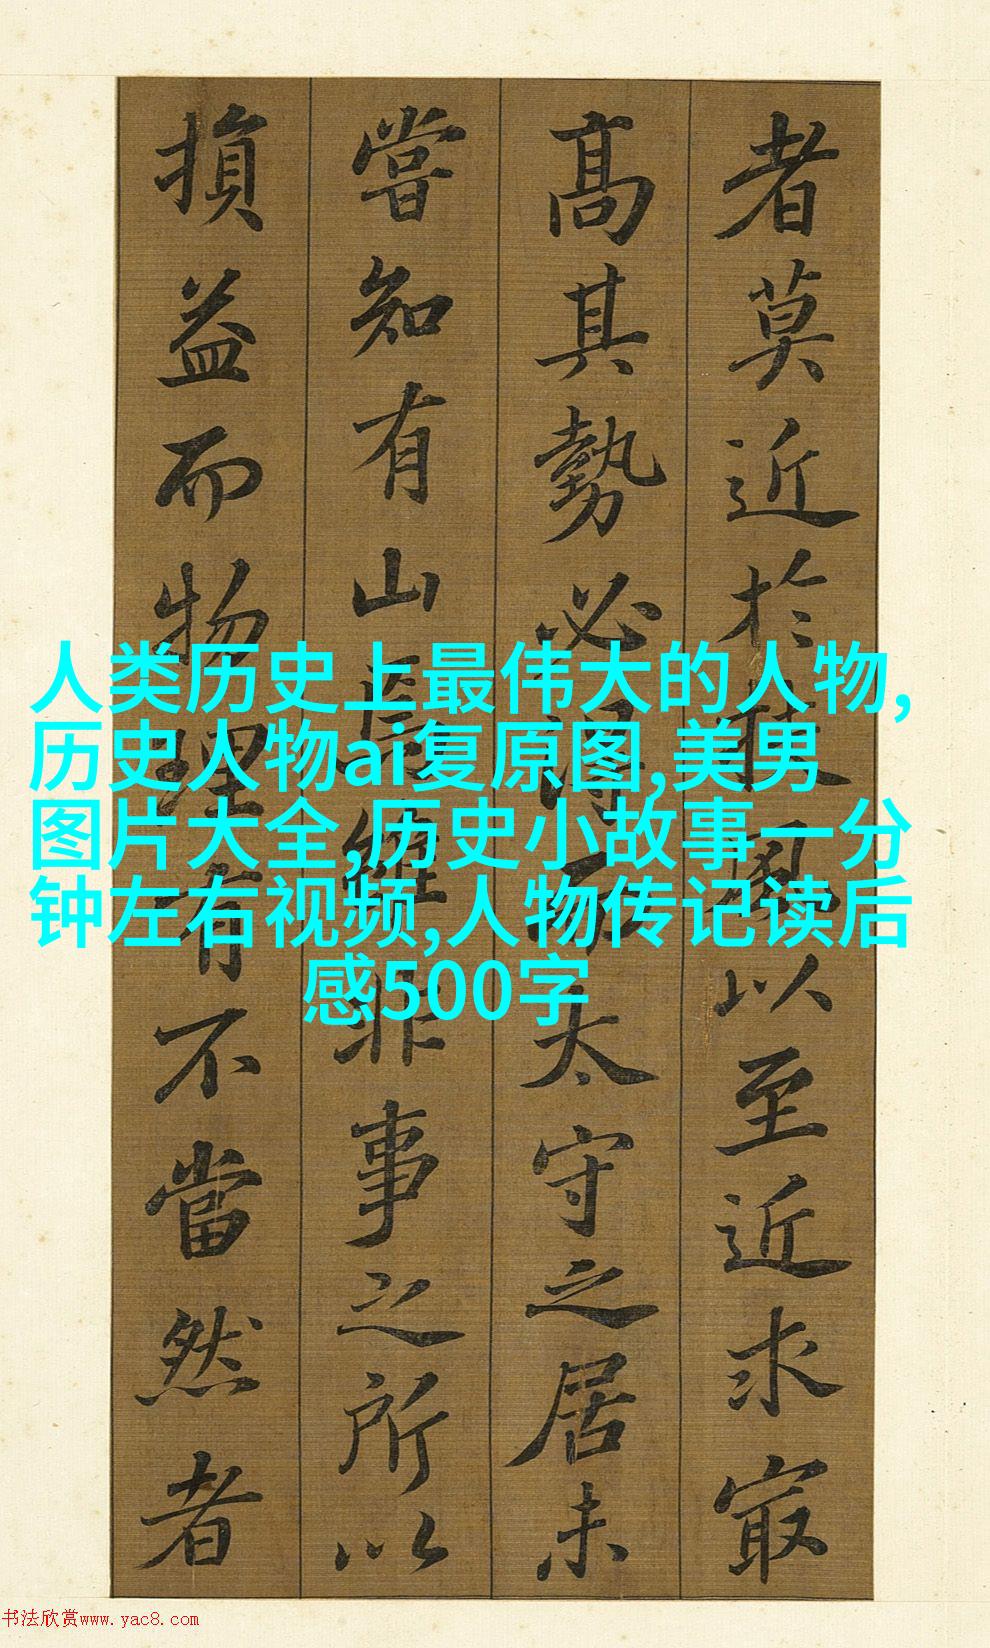 者莫近於扶風以至近求冣
高其勢必得而太守之居未
嘗知有山焉雖非事之所以
損益而物理有不當然者
人类历史上最伟大的人物,
历史人物ai复原图,美男
图片大全,历史小故事一分
钟左右视频,人物传记读后
感500字
书法欣赏www.yac8.com